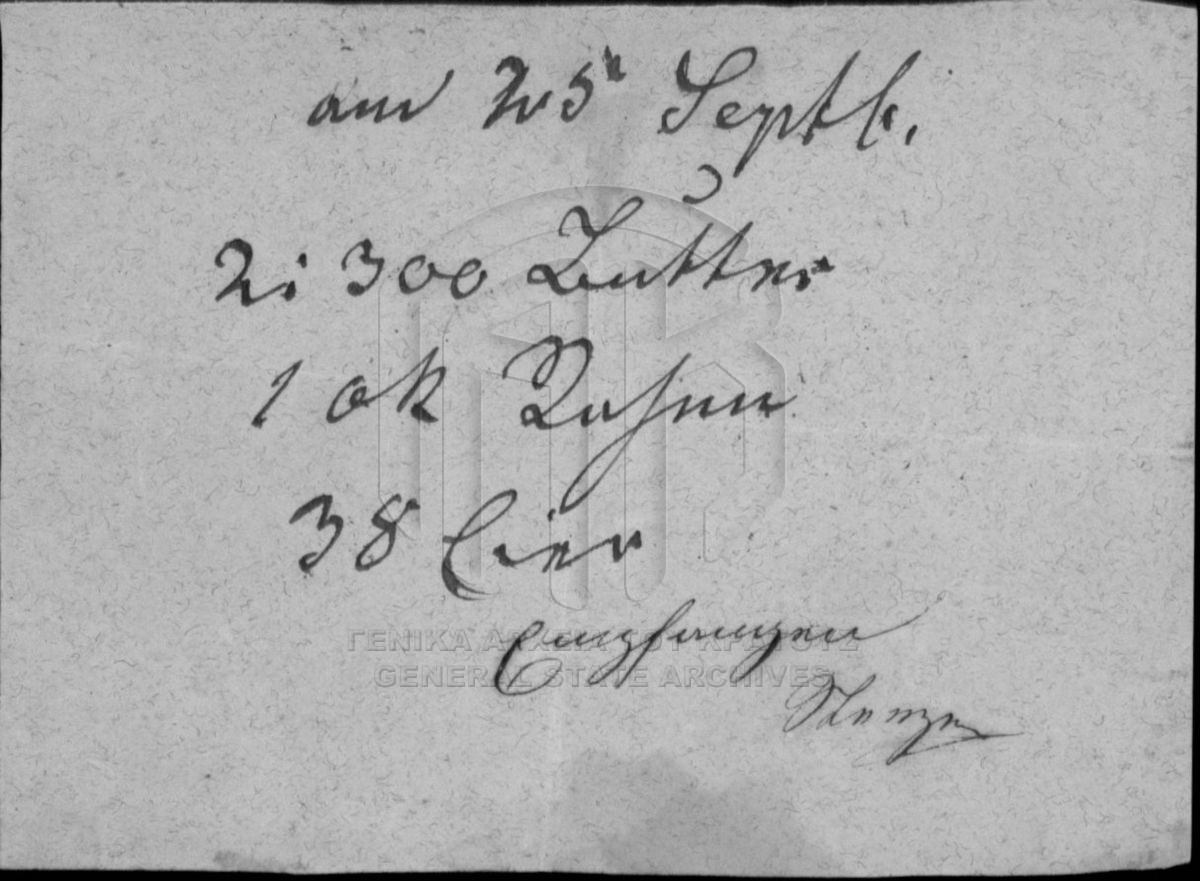 am 25t Septb.
2: 300 Butter
1 ok
38 Eier
Empfangen
ΓΕΝΙΚΑ ΑΡΧΕΙΑ ΤΟΥ ΚΡΑΤΟΥΣ
GENERAL STATE ARCHIVES